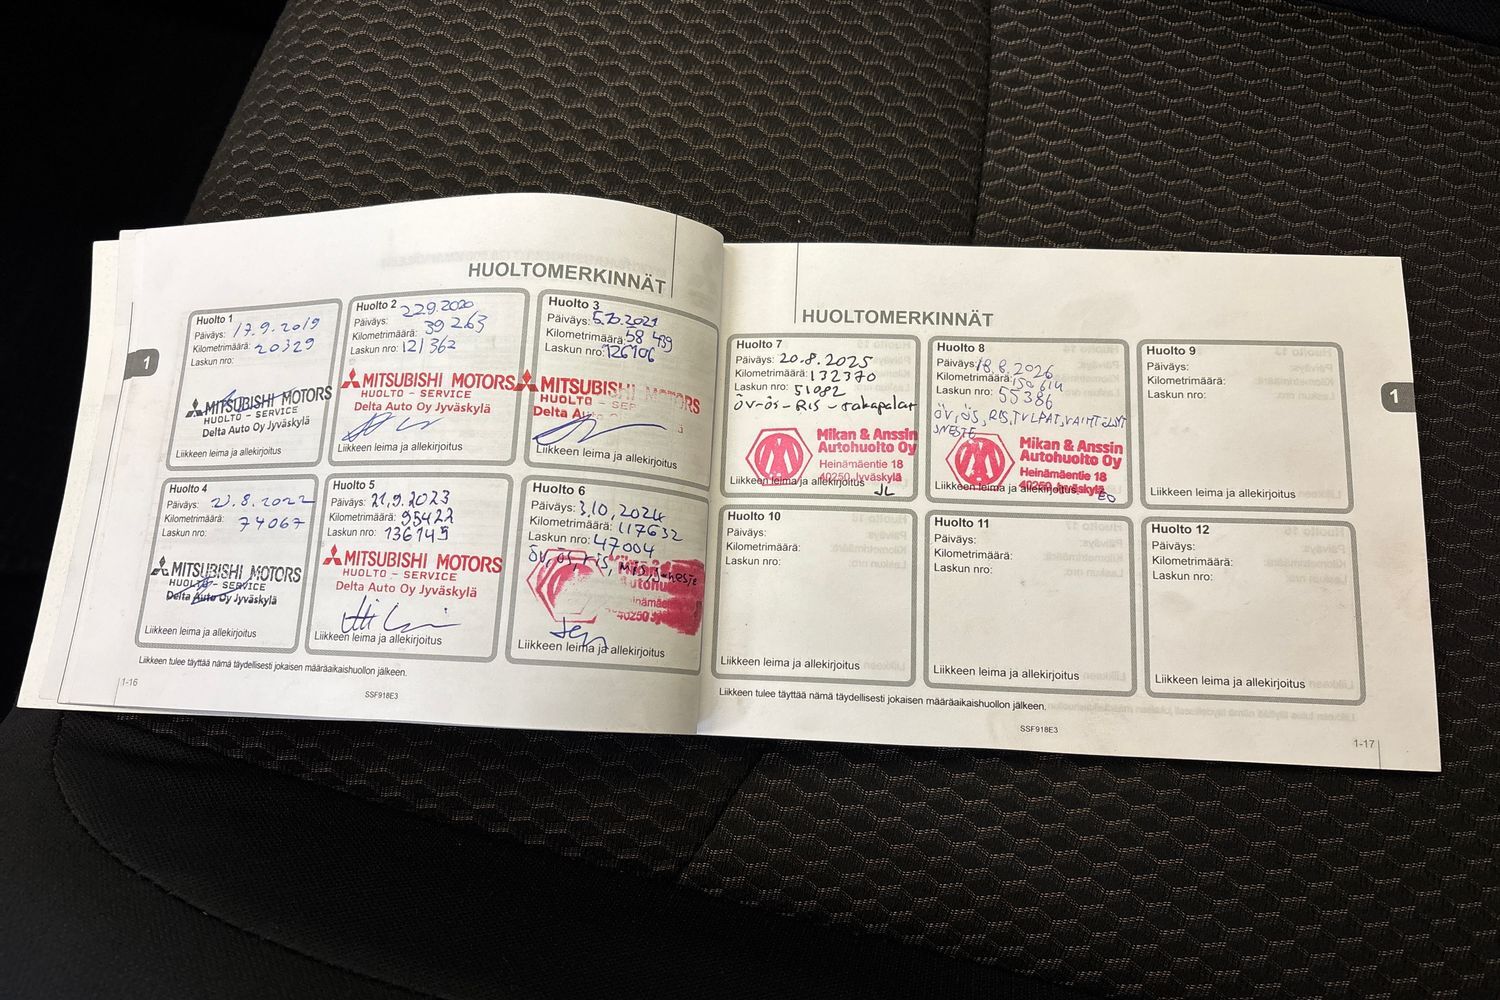 HUOLTOMERKINNÄT
1
Huolto 1
Päiväys: 17.9.2019
Kilometrimäärä: 20329
Laskun nro:
MITSUBISHI MOTORS
HUOLTO - SERVICE
Delta Auto Oy Jyväskylä
Liikkeen leima ja allekirjoitus
Huolto 2
Päiväys: 22.9.2020
Kilometrimäärä: 39 263
Laskun nro: 121362
MITSUBISHI MOTORS
HUOLTO - SERVICE
Delta Auto Oy Jyväskylä
Liikkeen leima ja allekirjoitus
Huolto 3
Päiväys: 5.10.2021
Kilometrimäärä: 58 439
Laskun nro: 126106
MITSUBISHI MOTORS
HUOLTO - SER
Delta Au
Liikkeen leima ja allekirjoitus
Huolto 4
Päiväys: 23.8.2022
Kilometrimäärä: 74067
Laskun nro:
MITSUBISHI MOTORS
HUOLTO - SERVICE
Delta Auto Oy Jyväskylä
Liikkeen leima ja allekirjoitus
Huolto 5
Päiväys: 21.9.2023
Kilometrimäärä: 95422
Laskun nro: 136145
MITSUBISHI MOTORS
HUOLTO - SERVICE
Delta Auto Oy Jyväskylä
Liikkeen leima ja allekirjoitus
Huolto 6
Päiväys: 3.10.2024
Kilometrimäärä: 117632
Laskun nro: 47004
öv, ös, ris,
40250
Liikkeen leima ja allekirjoitus
Liikkeen tulee täyttää nämä täydellisesti jokaisen määräaikaishuollon jälkeen.
1-16
SSF918E3
HUOLTOMERKINNÄT
1
Huolto 7
Päiväys: 20.8.2025
Kilometrimäärä: 132370
Laskun nro: 51082
öv-ös-RIS-takapalat
Mikan & Anssin
Autohuolto Oy
Heinämäentie 18
40250 Jyväskylä
Liikkeen leima ja allekirjoitus
JL
Huolto 8
Päiväys: 18.8.2026
Kilometrimäärä: 150614
Laskun nro: 55386
ÖV, ÖS, RIS, TULPAT,
SNESTE
Mikan & Anssin
Autohuolto Oy
Heinämäentie 18
40250 Jyväskylä
Liikkeen leima ja allekirjoitus
EO
Huolto 9
Päiväys:
Kilometrimäärä:
Laskun nro:
Liikkeen leima ja allekirjoitus
Huolto 10
Päiväys:
Kilometrimäärä:
Laskun nro:
Liikkeen leima ja allekirjoitus
Huolto 11
Päiväys:
Kilometrimäärä:
Laskun nro:
Liikkeen leima ja allekirjoitus
Huolto 12
Päiväys:
Kilometrimäärä:
Laskun nro:
Liikkeen leima ja allekirjoitus
Liikkeen tulee täyttää nämä täydellisesti jokaisen määräaikaishuollon jälkeen.
SSF918E3
1-17